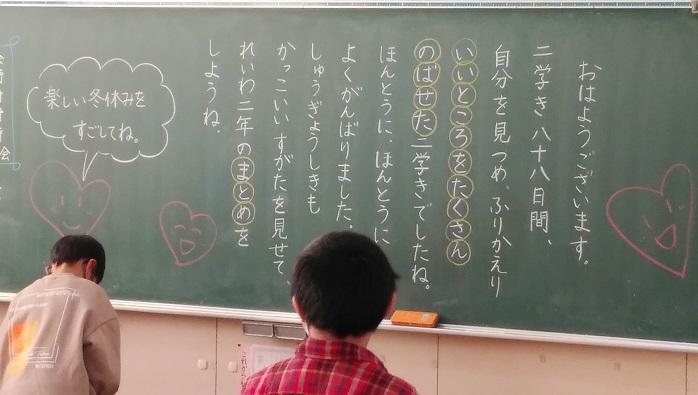 おはようございます。
二学き 八十八日間、
自分を見つめ、ふりかえり
いいところをたくさん
のばせた二学きでしたね。
ほんとうに、ほんとうに
よくがんばりました。
しゅうぎょうしきも
かっこいいすがたを見せて、
れいわ二年のまとめを
しようね。
楽しい冬休みを
すごしてね。